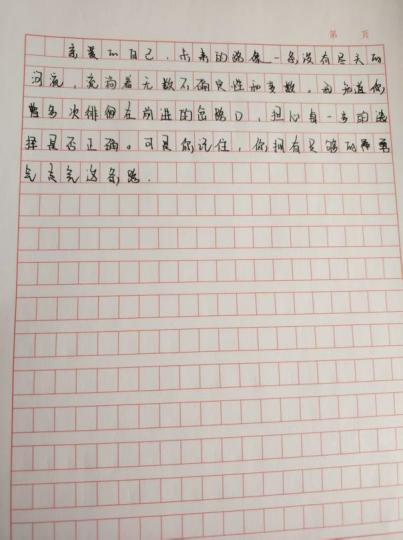 第 页
亲爱的自己，未来的路像一条没有尽头的
河流，充满着无数不确定性和变数。我知道你
曾多次徘徊在前进的岔路口，担心每一步的选
择是否正确。可是你记住，你拥有足够的勇
气走完这条路.